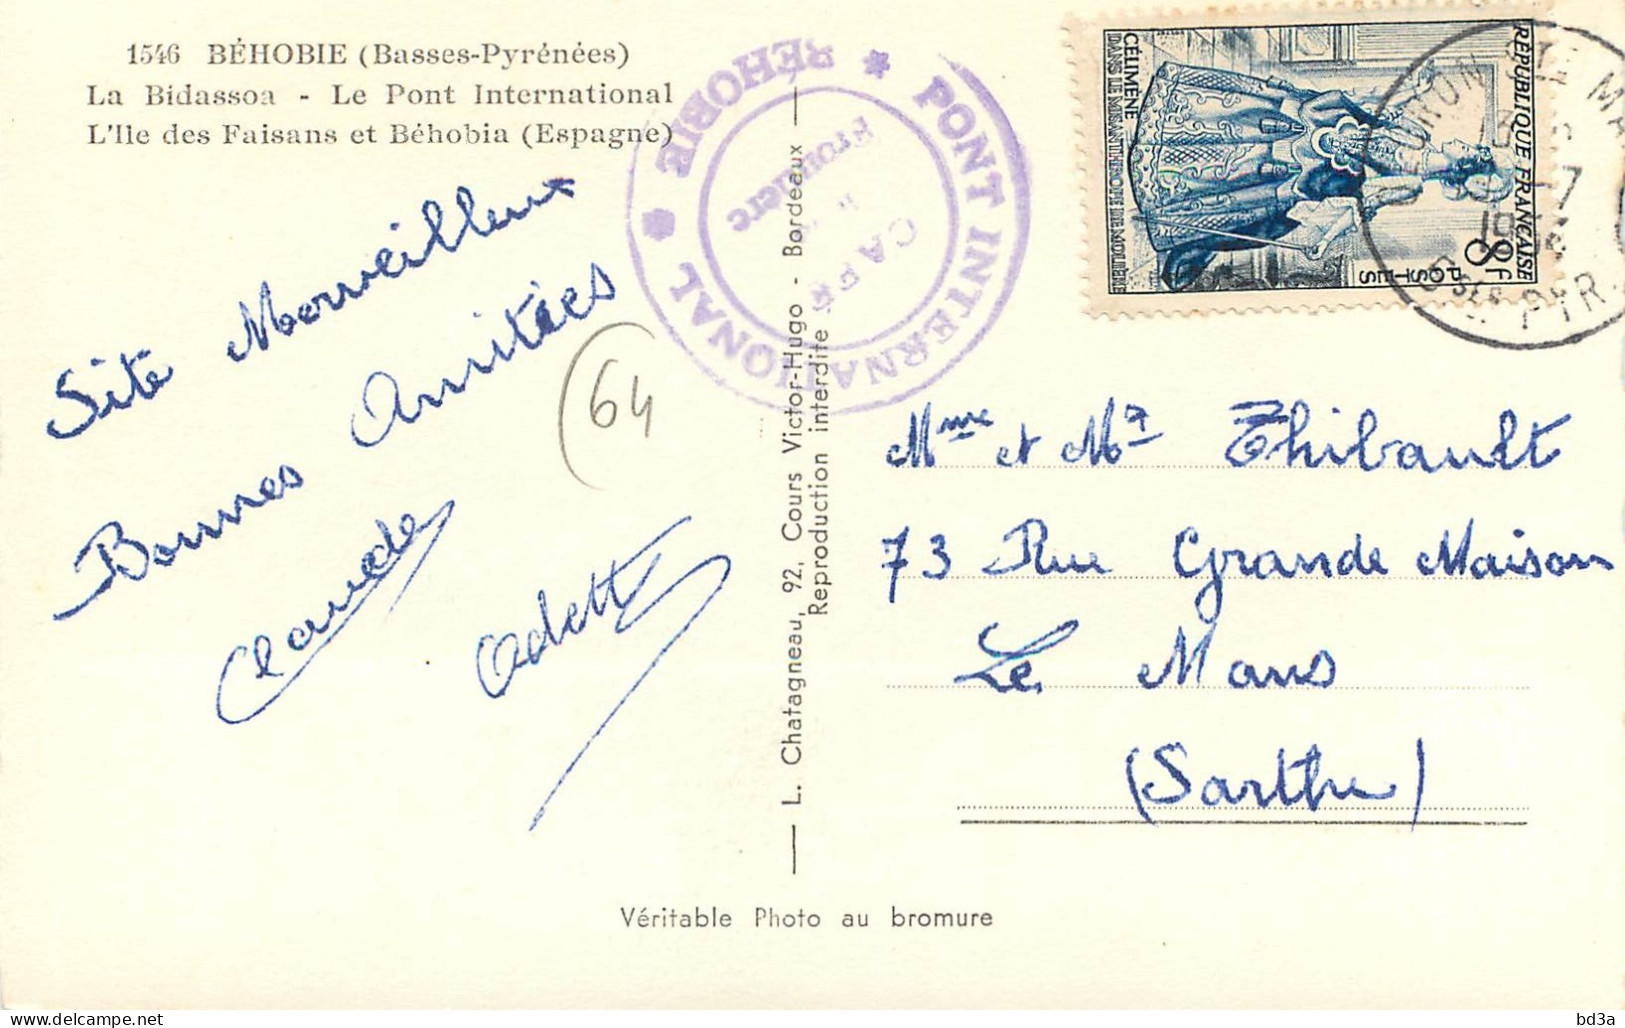 1546 BÉHOBIE (Basses-Pyrénées)
La Bidassoa - Le Pont International
L'Ile des Faisans et Béhobia (Espagne)
Site Merveilleux
Bonnes Amitiées
Claude
Odette
(64
PONT INTERNATIONAL * BEHOBIE *
CAFÉ
Frontière
L. Chatagneau, 92, Cours Victor-Hugo - Bordeaux
Reproduction interdite
RÉPUBLIQUE FRANÇAISE
8F
POSTES
CÉLIMÈNE
DANS LE MISANTHROPE DE MOLIÈRE
OLORON STE MA
Bses PYR.
Mme et Mr Thibault
73 Rue Grande Maison
Le Mans
(Sarthe)
Véritable Photo au bromure
bd3a